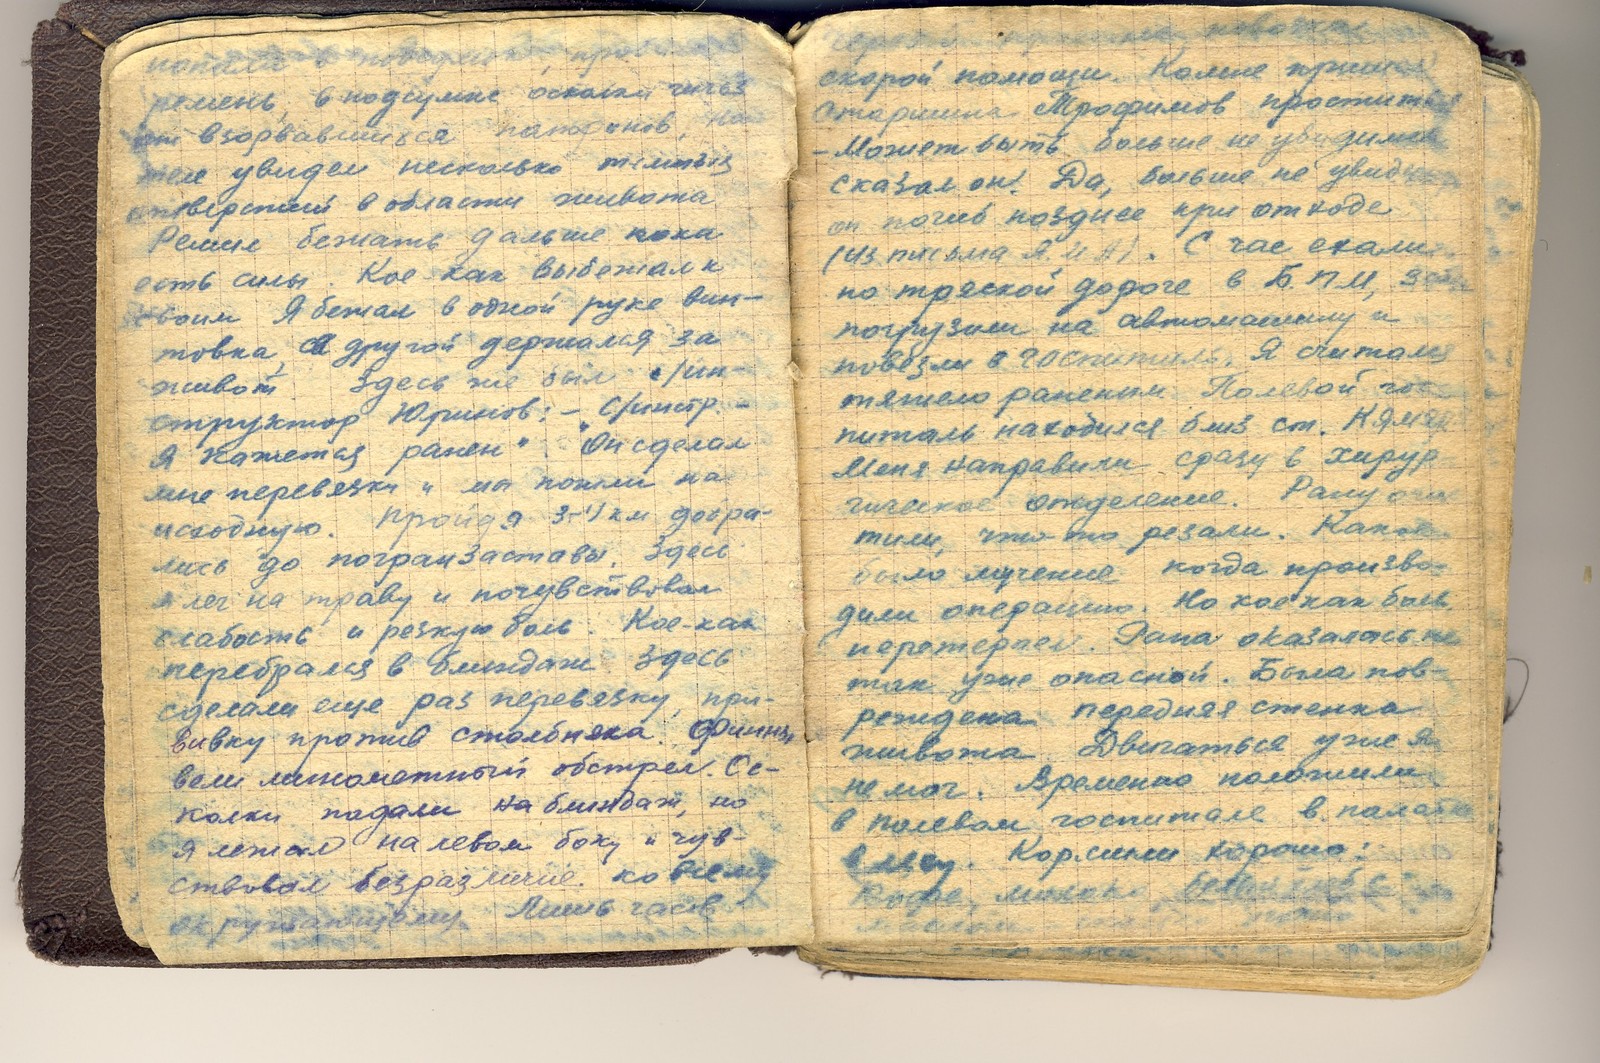 попала в
ремень, в подсумке осколки гильз
от взорвавшихся патронов, на
теле увидел несколько темных
отверстий в области живота
Решил бежать дальше пока
есть силы. Кое как выбежал к
своим Я бежал в одной руке вин-
товка, а другой держался за
живот Здесь же был с/ин-
структор Юринов: – С/инстр. –
я кажется ранен". Он сделал
мне перевязку и мы пошли на
исходную. Пройдя 3-4 км добра-
лись до погранзаставы. Здесь
я лег на траву и почувствовал
слабость и резкую боль. Кое-как
перебрался в блиндаж. Здесь
сделали еще раз перевязку, при-
вивку против столбняка. Финны
вели минометный обстрел. Ос-
колки падали на блиндаж, но
я лежал на левом боку и чув-
ствовал безразличие ко всему
окружающему Лишь часов
повозка
скорой помощи. Ко мне пришел
старшина Трофимов проститься
– Может быть больше не увидимся
сказал он! Да, больше не
он погиб позднее при отходе
(из письма А.И.А). С час ехали
по тряской дороге в Б.П.М,
погрузили на автомашину и
повезли в госпиталь. Я считался
тяжело раненым Полевой гос-
питаль находился близ ст.
Меня направили сразу в хирур-
гическое отделение. Рану очис-
тили, что-то резали. Какое
было мучение когда произво-
дили операцию. Но кое как боль
перетерпел. Рана оказалась не
так уже опасной. Была пов-
реждена передняя стенка
живота Двигаться уже я
не мог. Временно положили
в полевом госпитале в палатке
Кормили хорошо:
Кофе, молоко,
маслом